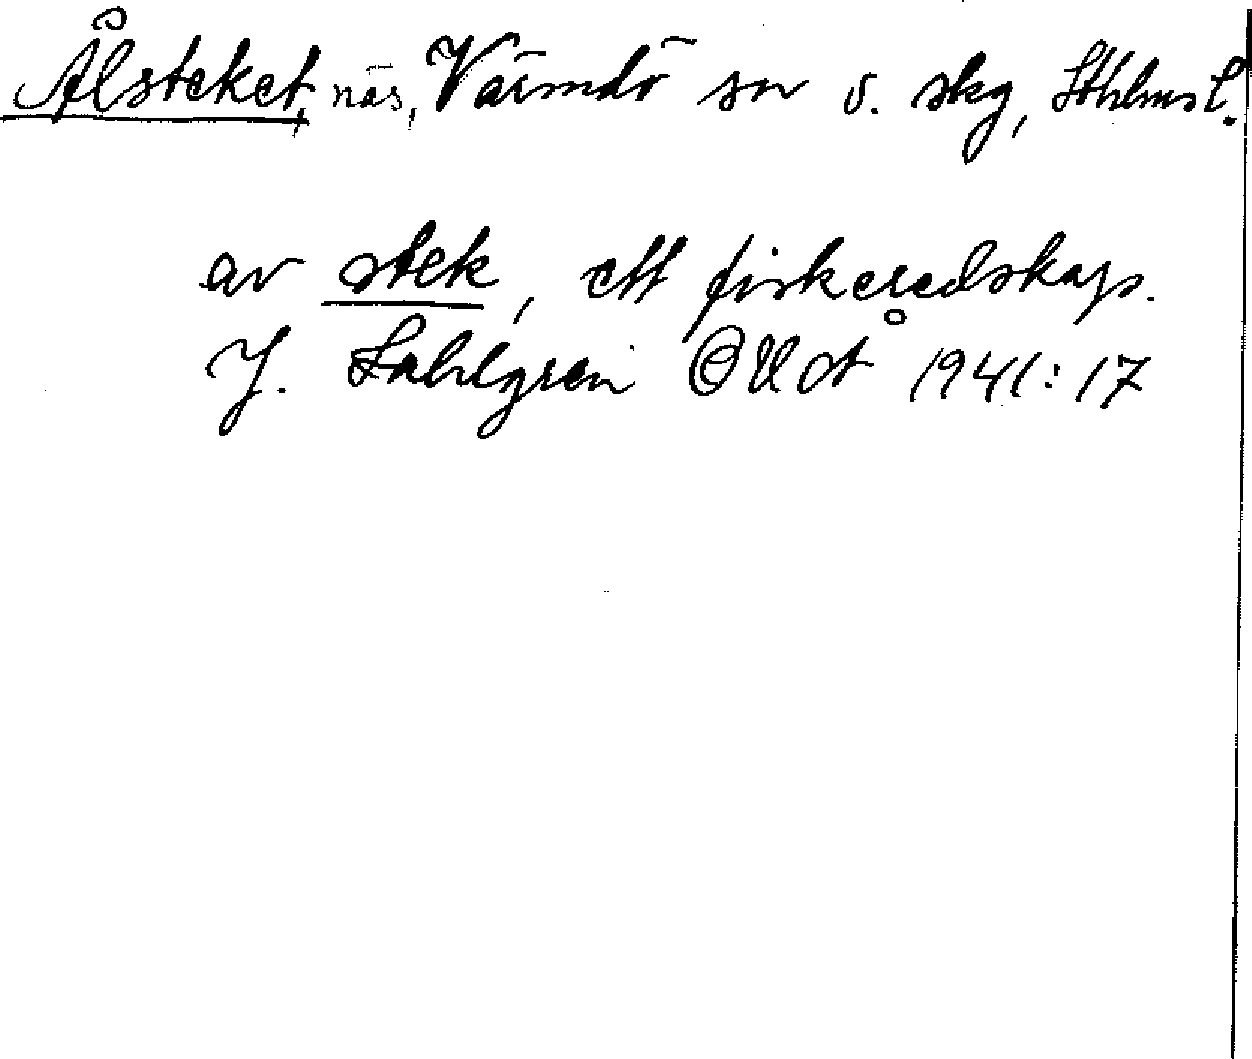 Ålsteket, näs, Värmdö sn o. skg, Sthlms l.
av stek, ett fiskeredskap.
J. Sahlgren OUÅ 1941:17